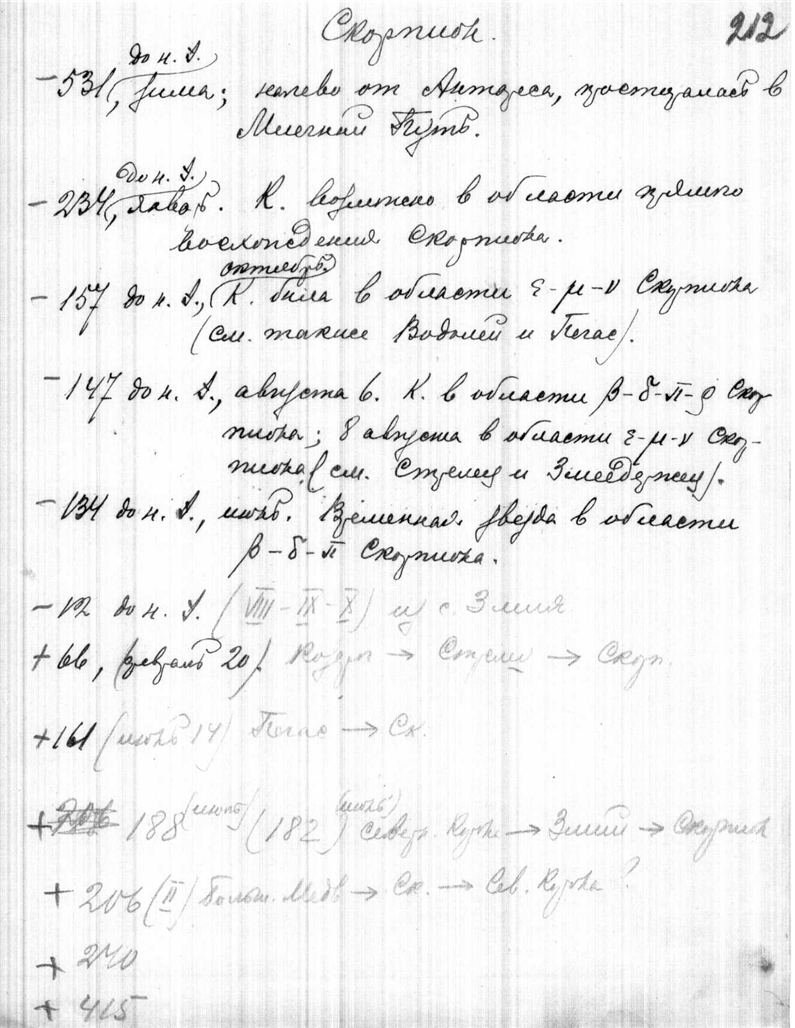 Скорпион. 212
до н. Э.
– 531, зима; налево от Антареса, простиралась в
Млечный Путь.
до н. Э.
– 234, январь. К. возможно в области прямого
восхождения Скорпиона.
октябрь.
– 157 до н. Э., К. была в области ε-μ-ν Скорпиона
(см. также Водолей и Пегас).
– 147 до н. Э., августа 6. К. в области β-δ-π-ρ Скор
пиона; 8 августа в области ε-μ-ν Скор-
пиона (см. Стрелец и Змеедержец).
– 134 до н. Э., июль. Временная звезда в области
β-δ-π Скорпиона.
– 12 до н. Э. (VIII-IX-X) из с. Змия
+ 66, (февраль 20). → → Скорп.
+ 161 (июнь 14) Пегас → Ск.
(июль) (июнь)
+ 188 (182) северн. Корона → Змий → Скорпион
+ 206 (II) больш. Медв → Ск. → Сев. Корона?
+ 240
+ 415